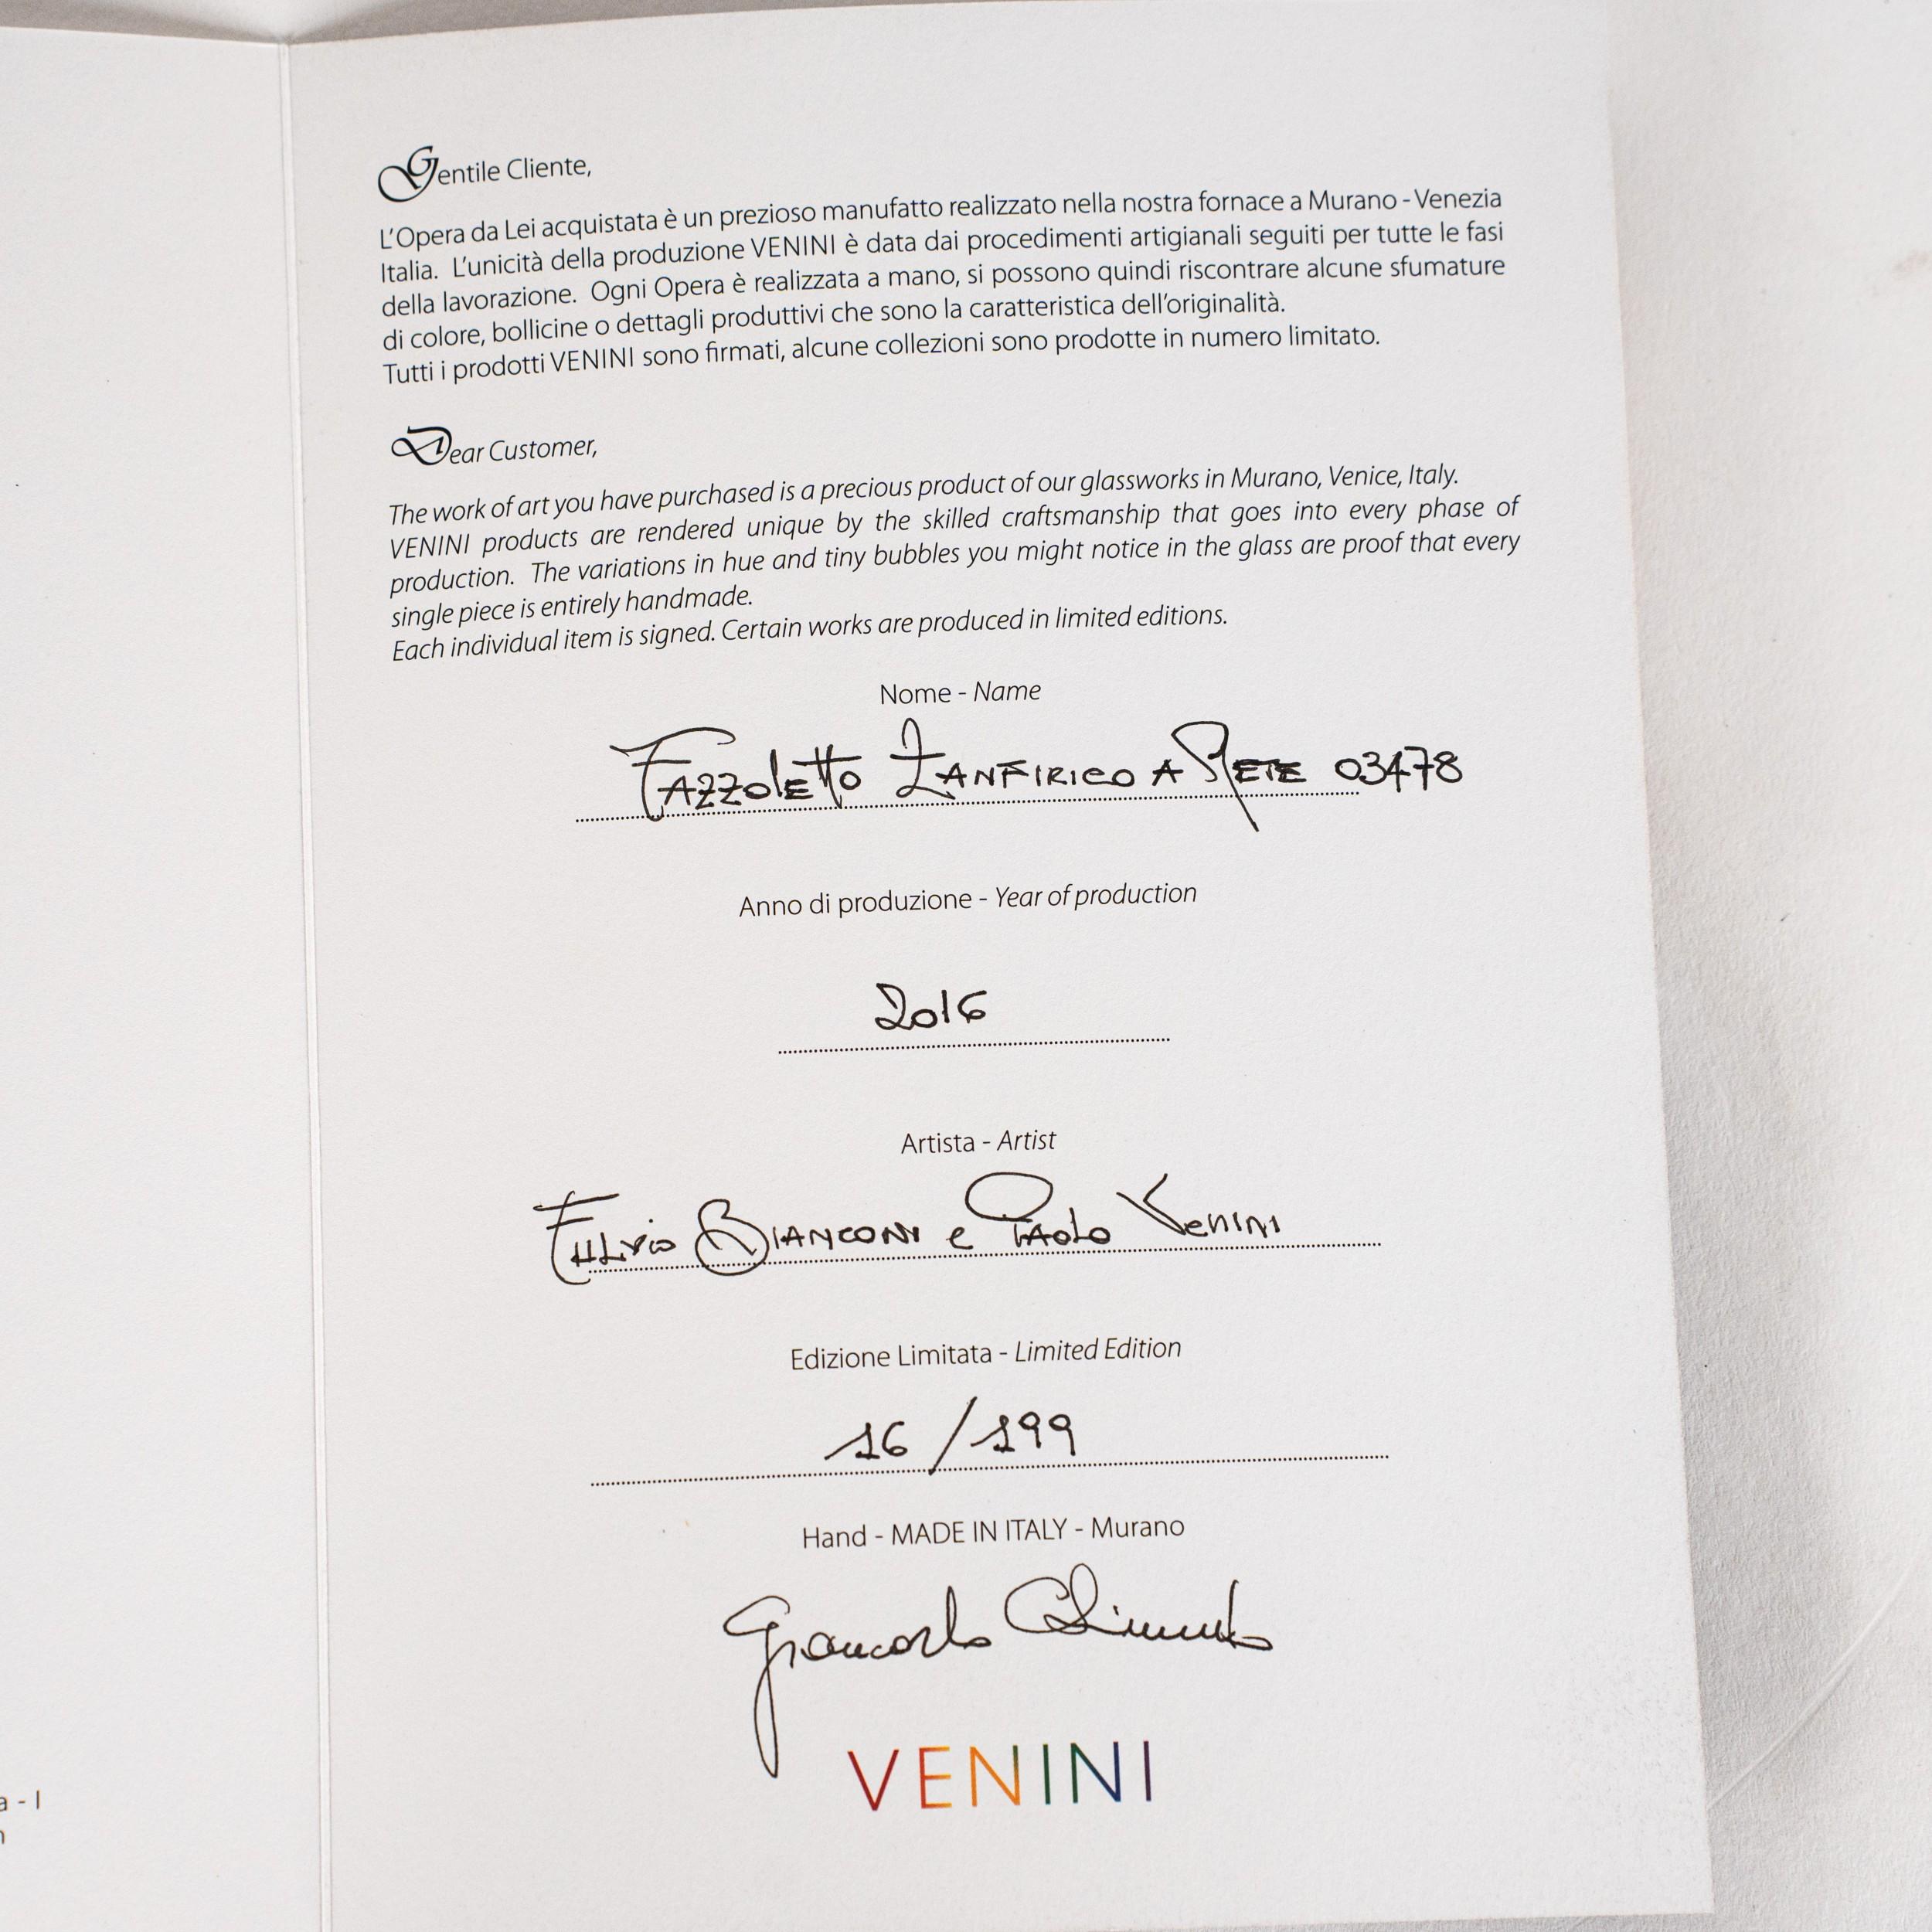 Gentile Cliente,
L'Opera da Lei acquistata è un prezioso manufatto realizzato nella nostra fornace a Murano - Venezia
Italia. L'unicità della produzione VENINI è data dai procedimenti artigianali seguiti per tutte le fasi
della lavorazione. Ogni Opera è realizzata a mano, si possono quindi riscontrare alcune sfumature
di colore, bollicine o dettagli produttivi che sono la caratteristica dell'originalità.
Tutti i prodotti VENINI sono firmati, alcune collezioni sono prodotte in numero limitato.
Dear Customer,
The work of art you have purchased is a precious product of our glassworks in Murano, Venice, Italy.
VENINI products are rendered unique by the skilled craftsmanship that goes into every phase of
production. The variations in hue and tiny bubbles you might notice in the glass are proof that every
single piece is entirely handmade.
Each individual item is signed. Certain works are produced in limited editions.
Nome - Name
Fazzoletto Zanfirico a Rete 03478
Anno di produzione - Year of production
2016
Artista - Artist
Fulvio Bianconi e Paolo Venini
Edizione Limitata - Limited Edition
16/199
Hand - MADE IN ITALY - Murano
Giancarlo
VENINI
a - I